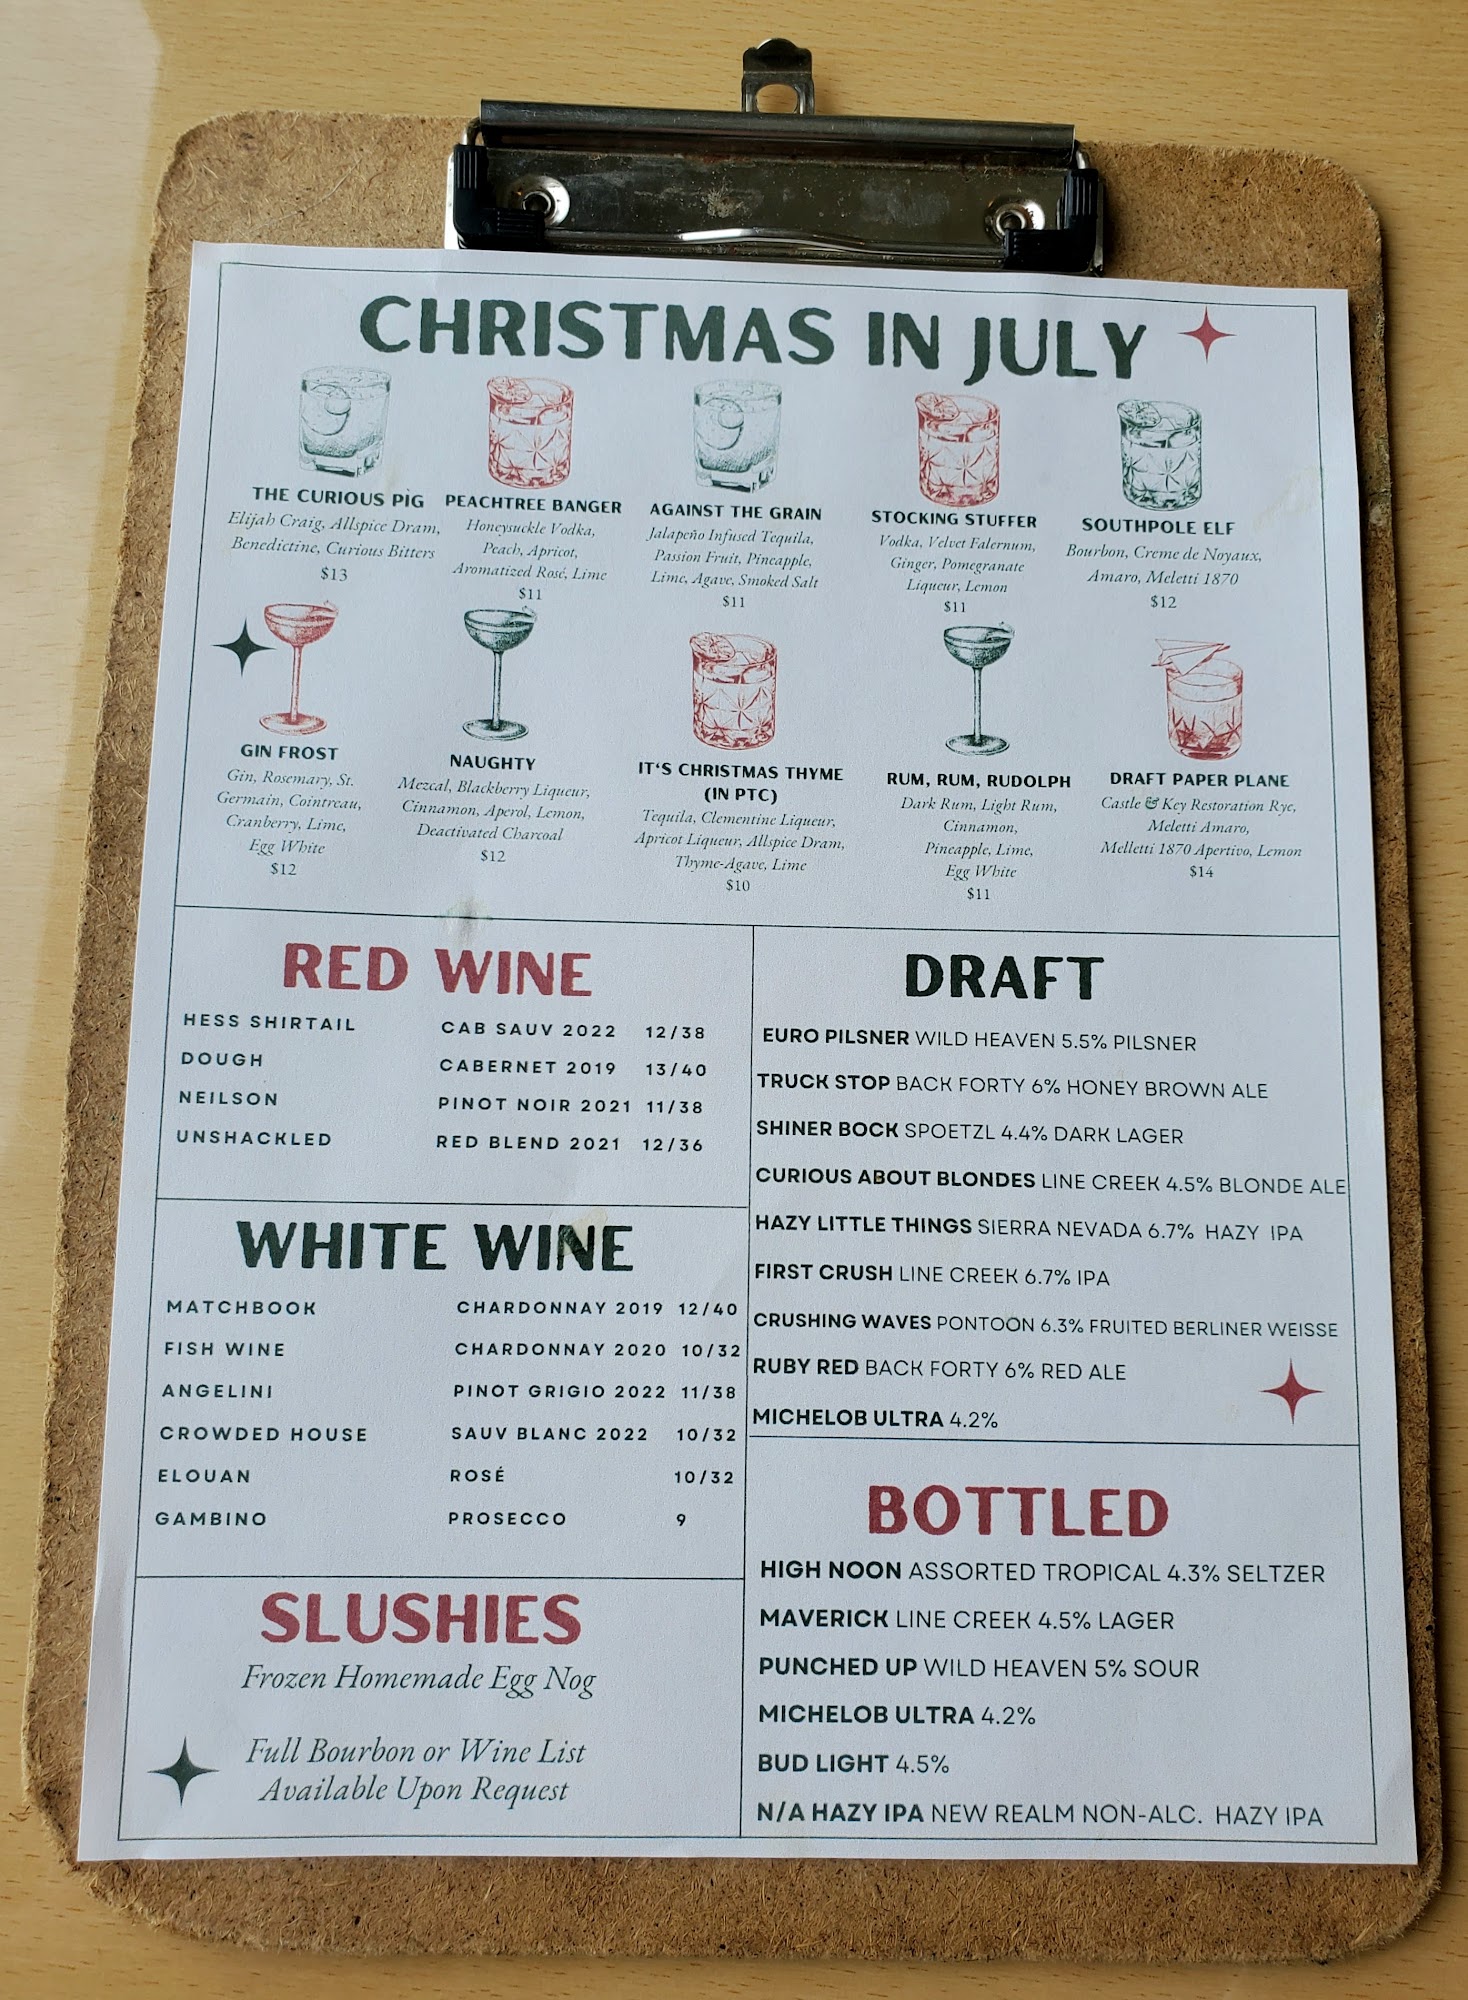 CHRISTMAS IN JULY
THE CURIOUS PIG
Elijah Craig, Allspice Dram,
Benedictine, Curious Bitters
$13
PEACHTREE BANGER
Honeysuckle Vodka,
Peach, Apricot,
Aromatized Rosé, Lime
$11
AGAINST THE GRAIN
Jalapeño Infused Tequila,
Passion Fruit, Pineapple,
Lime, Agave, Smoked Salt
$11
STOCKING STUFFER
Vodka, Velvet Falernum,
Ginger, Pomegranate
Liqueur, Lemon
$11
SOUTHPOLE ELF
Bourbon, Creme de Noyaux,
Amaro, Meletti 1870
$12
GIN FROST
Gin, Rosemary, St.
Germain, Cointreau,
Cranberry, Lime,
Egg White
$12
NAUGHTY
Mezcal, Blackberry Liqueur,
Cinnamon, Aperol, Lemon,
Deactivated Charcoal
$12
IT'S CHRISTMAS THYME
(IN PTC)
Tequila, Clementine Liqueur,
Apricot Liqueur, Allspice Dram,
Thyme-Agave, Lime
$10
RUM, RUM, RUDOLPH
Dark Rum, Light Rum,
Cinnamon,
Pineapple, Lime,
Egg White
$11
DRAFT PAPER PLANE
Castle & Key Restoration Rye,
Meletti Amaro,
Melletti 1870 Apertivo, Lemon
$14
RED WINE
HESS SHIRTAIL CAB SAUV 2022 12/38
DOUGH CABERNET 2019 13/40
NEILSON PINOT NOIR 2021 11/38
UNSHACKLED RED BLEND 2021 12/36
WHITE WINE
MATCHBOOK CHARDONNAY 2019 12/40
FISH WINE CHARDONNAY 2020 10/32
ANGELINI PINOT GRIGIO 2022 11/38
CROWDED HOUSE SAUV BLANC 2022 10/32
ELOUAN ROSÉ 10/32
GAMBINO PROSECCO 9
SLUSHIES
Frozen Homemade Egg Nog
Full Bourbon or Wine List
Available Upon Request
DRAFT
EURO PILSNER WILD HEAVEN 5.5% PILSNER
TRUCK STOP BACK FORTY 6% HONEY BROWN ALE
SHINER BOCK SPOETZL 4.4% DARK LAGER
CURIOUS ABOUT BLONDES LINE CREEK 4.5% BLONDE ALE
HAZY LITTLE THINGS SIERRA NEVADA 6.7% HAZY IPA
FIRST CRUSH LINE CREEK 6.7% IPA
CRUSHING WAVES PONTOON 6.3% FRUITED BERLINER WEISSE
RUBY RED BACK FORTY 6% RED ALE
MICHELOB ULTRA 4.2%
BOTTLED
HIGH NOON ASSORTED TROPICAL 4.3% SELTZER
MAVERICK LINE CREEK 4.5% LAGER
PUNCHED UP WILD HEAVEN 5% SOUR
MICHELOB ULTRA 4.2%
BUD LIGHT 4.5%
N/A HAZY IPA NEW REALM NON-ALC. HAZY IPA